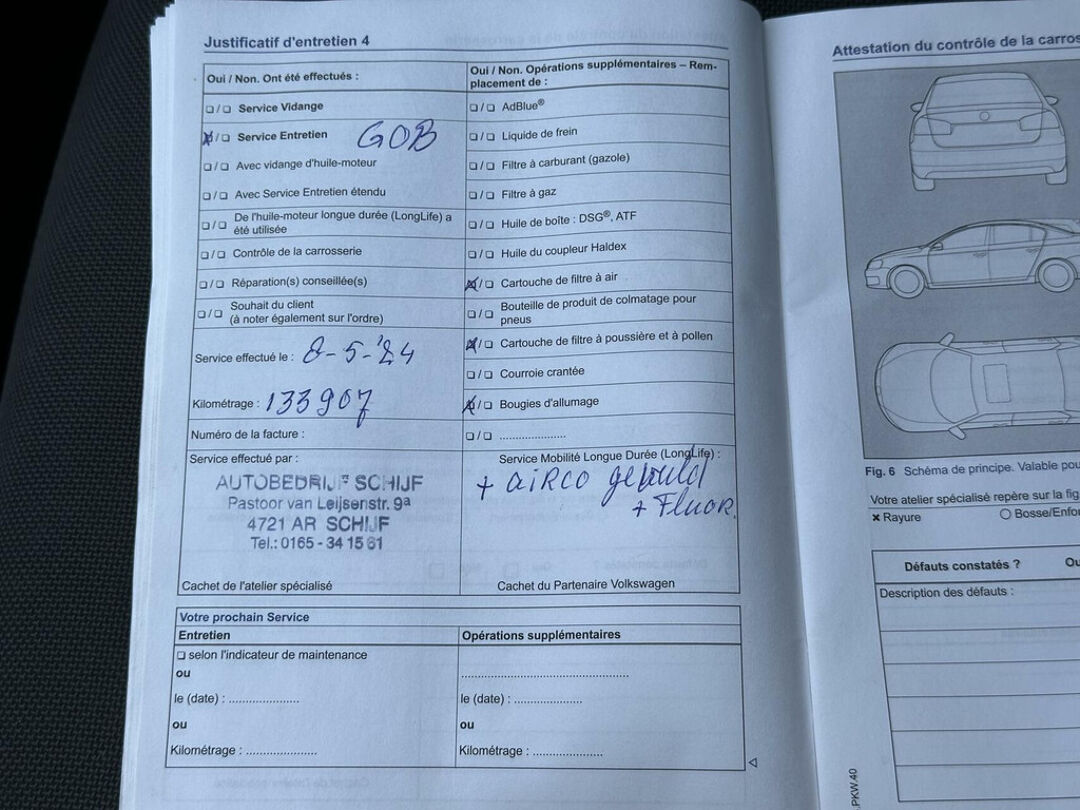 Justificatif d'entretien 4
Oui / Non. Ont été effectués :
❏ / ❏ Service Vidange
❏ / ❏ Service Entretien GOB
❏ / ❏ Avec vidange d'huile-moteur
❏ / ❏ Avec Service Entretien étendu
❏ / ❏ De l'huile-moteur longue durée (LongLife) a
été utilisée
❏ / ❏ Contrôle de la carrosserie
❏ / ❏ Réparation(s) conseillée(s)
❏ / ❏ Souhait du client
(à noter également sur l'ordre)
Service effectué le : 8-5-'24
Kilométrage : 133907
Numéro de la facture :
Service effectué par :
AUTOBEDRIJF SCHIJF
Pastoor van Leijsenstr. 9a
4721 AR SCHIJF
Tel.: 0165 - 34 15 61
Cachet de l'atelier spécialisé
Oui / Non. Opérations supplémentaires – Rem-
placement de :
❏ / ❏ AdBlue®
❏ / ❏ Liquide de frein
❏ / ❏ Filtre à carburant (gazole)
❏ / ❏ Filtre à gaz
❏ / ❏ Huile de boîte : DSG®, ATF
❏ / ❏ Huile du coupleur Haldex
❏ / ❏ Cartouche de filtre à air
❏ / ❏ Bouteille de produit de colmatage pour
pneus
❏ / ❏ Cartouche de filtre à poussière et à pollen
❏ / ❏ Courroie crantée
❏ / ❏ Bougies d'allumage
❏ / ❏ ......................
Service Mobilité Longue Durée (LongLife) :
+ AIRCO gevuld
+ Fluor.
Cachet du Partenaire Volkswagen
Votre prochain Service
Entretien
❏ selon l'indicateur de maintenance
ou
le (date) : ......................
ou
Kilométrage : ......................
Opérations supplémentaires
......................................................
le (date) : ......................
ou
Kilométrage : ......................
Attestation du contrôle de la carros
Fig. 6 Schéma de principe. Valable pou
Votre atelier spécialisé repère sur la fig
✕ Rayure
○ Bosse/Enfo
Défauts constatés ? Ou
Description des défauts :
PKW.40